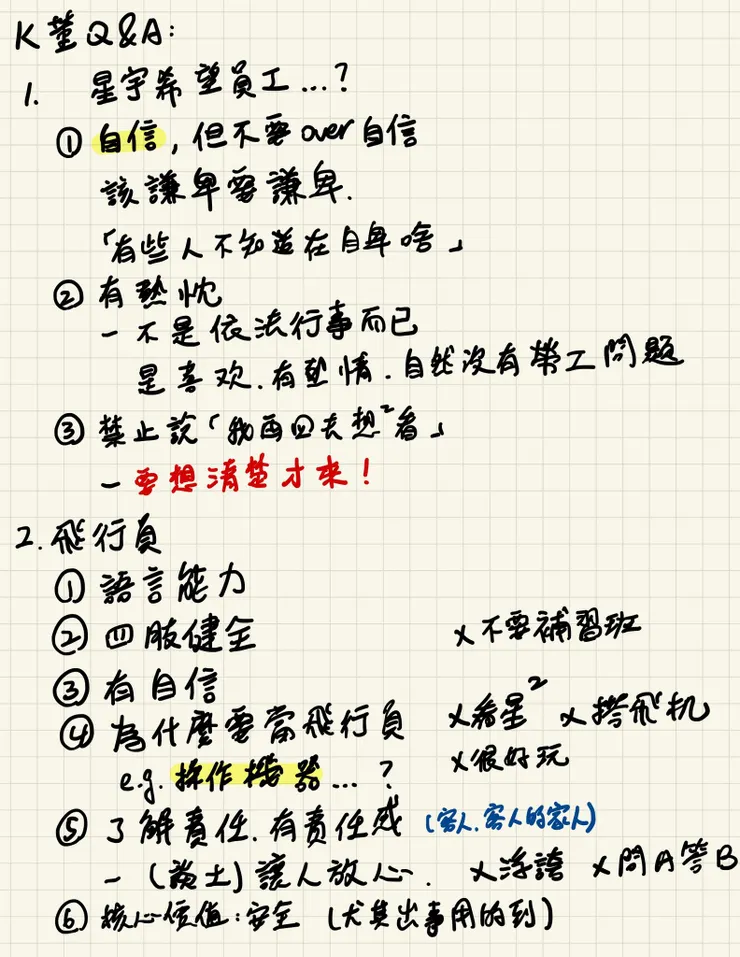 K董Q&A:
1. 星宇希望員工...?
① 自信,但不要over自信
該謙卑要謙卑.
「有些人不知道在自卑啥」
② 有熱忱
- 不是依法行事而已
是喜欢.有熱情.自然沒有勞工問題
③ 禁止說「我再回去想²看」
- 要想清楚才來!
2. 飛行員
① 語言能力
② 四肢健全 x不要補習班
③ 有自信
④ 為什麼要當飛行員 x看星² x搭飛机
e.g. 操作機器...? x很好玩
⑤ 了解責任.有責任感 (客人.客人的家人)
- (談土)讓人放心. x浮誇 x問A答B
⑥ 核心價值:安全 (尤其出事用的到)